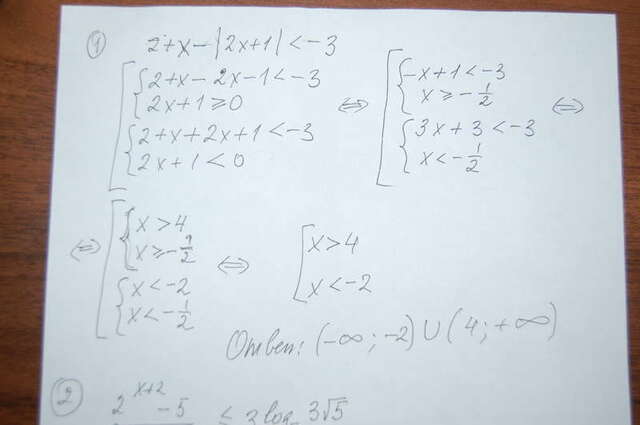 1 2+x-|2x+1|<-3
2+x-2x-1<-3
2x+1≥0
2+x+2x+1<-3
2x+1<0
⇔
-x+1<-3
x≥-1/2
3x+3<-3
x<-1/2
⇔
⇔
x>4
x≥-1/2
x<-2
x<-1/2
⇔
x>4
x<-2
Ответ: (-∞;-2)∪(4;+∞)
2 2^{x+2}-5 ≤ 3√5